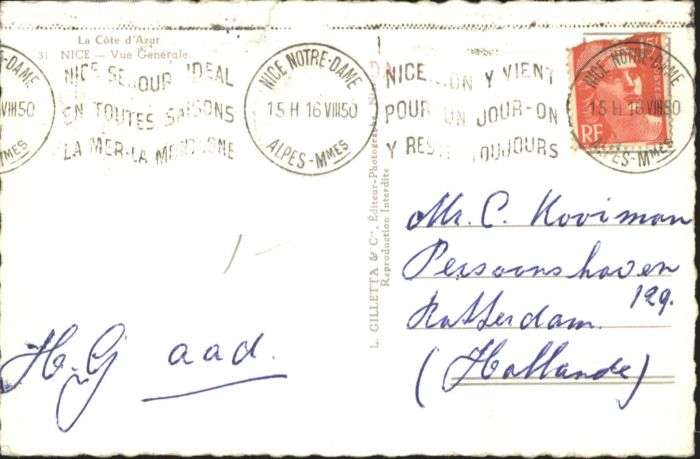 La Côte d'Azur
31 NICE — Vue Générale
NICE SEJOUR IDEAL
EN TOUTES SAISONS
LA MER-LA MONTAGNE
NICE NOTRE-DAME
15 H 16 VIII 50
ALPES-Mmes
NICE ON Y VIENT
POUR UN JOUR-ON
Y RESTE TOUJOURS
NICE NOTRE-DAME
15 H 16 VIII 50
ALPES-Mmes
RF
-DAME
VIII 50
Mmes
L. GILLETTA & Cie, Éditeur-Photographe
Reproduction Interdite
Mr. C. Kooiman
Persoonshaven
129.
Rotterdam.
(Hollande)
H.G aad.